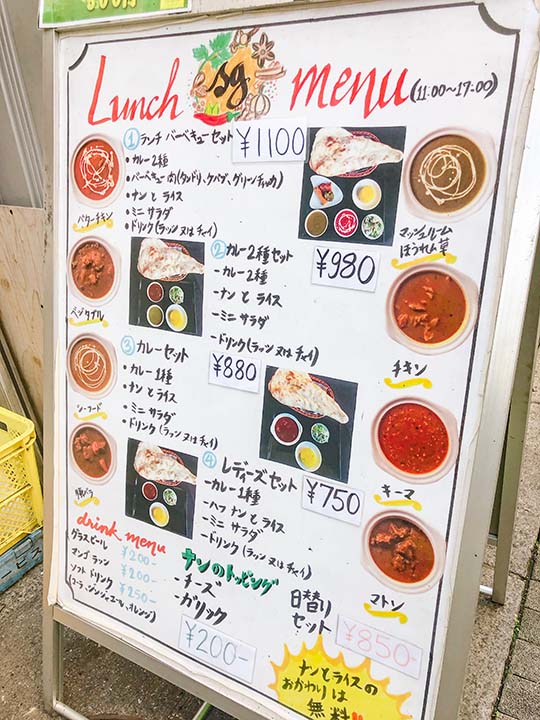 Lunch sg menu (11:00~17:00)
① ランチ バーベキューセット ¥1100
・カレー2種
・バーベキュー肉(タンドリ,ケバブ,グリーンチッカ)
・ナンとライス
・ミニサラダ
・ドリンク(ラッシ又はチャイ)
② カレー2種セット ¥980
-カレー2種
-ナンとライス
-ミニサラダ
-ドリンク(ラッシ又はチャイ)
③ カレーセット ¥880
・カレー1種
・ナンとライス
・ミニサラダ
・ドリンク(ラッシ又はチャイ)
④ レディーズセット ¥750
-カレー1種
-ハフナンとライス
-ミニサラダ
-ドリンク(ラッシ又はチャイ)
バターチキン
ベジタブル
シーフード
豚バラ
マッシュルーム
ほうれん草
チキン
キーマ
マトン
drink menu
グラスビール ¥200-
マンゴラッシ ¥200-
ソフトドリンク ¥250-
(コーラ,ジンジャエール,オレンジ)
ナンのトッピング
-チーズ
-ガリック
¥200-
日替り
セット ¥850-
ナンとライスの
おかわりは
無料!!